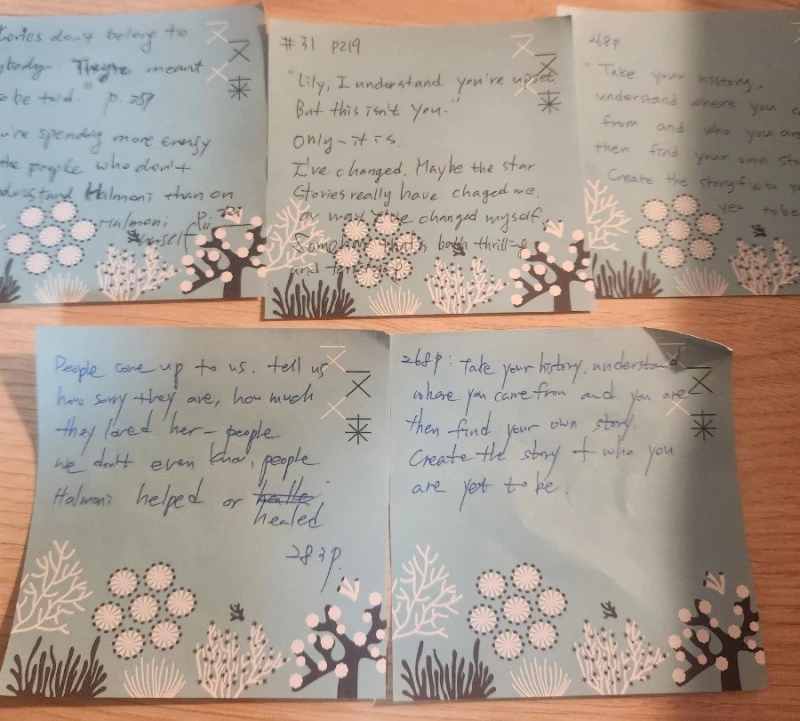 tories don't belong to
ybody. They're meant
o be told." p. 257
u're spending more energy
the people who don't
derstand Halmoni than on
Halmoni
himself" p.
#31 p219
"Lily, I understand you're upset
But this isn't you."
Only - it is.
I've changed. Maybe the star
stories really have chaged me.
or maybe I've changed myself.
Somehow, that's both thrilling
and terrifying.
268p
"Take your history,
understand where you c
from and who you are
then find your own sto
Create the story of who yo
yet to be
People come up to us, tell us
how sorry they are, how much
they loved her - people
we don't even know, people
Halmoni helped or
healed
283p.
268p: Take your history, understand
where you came from and you are
then find your own story.
Create the story of who you
are yet to be.